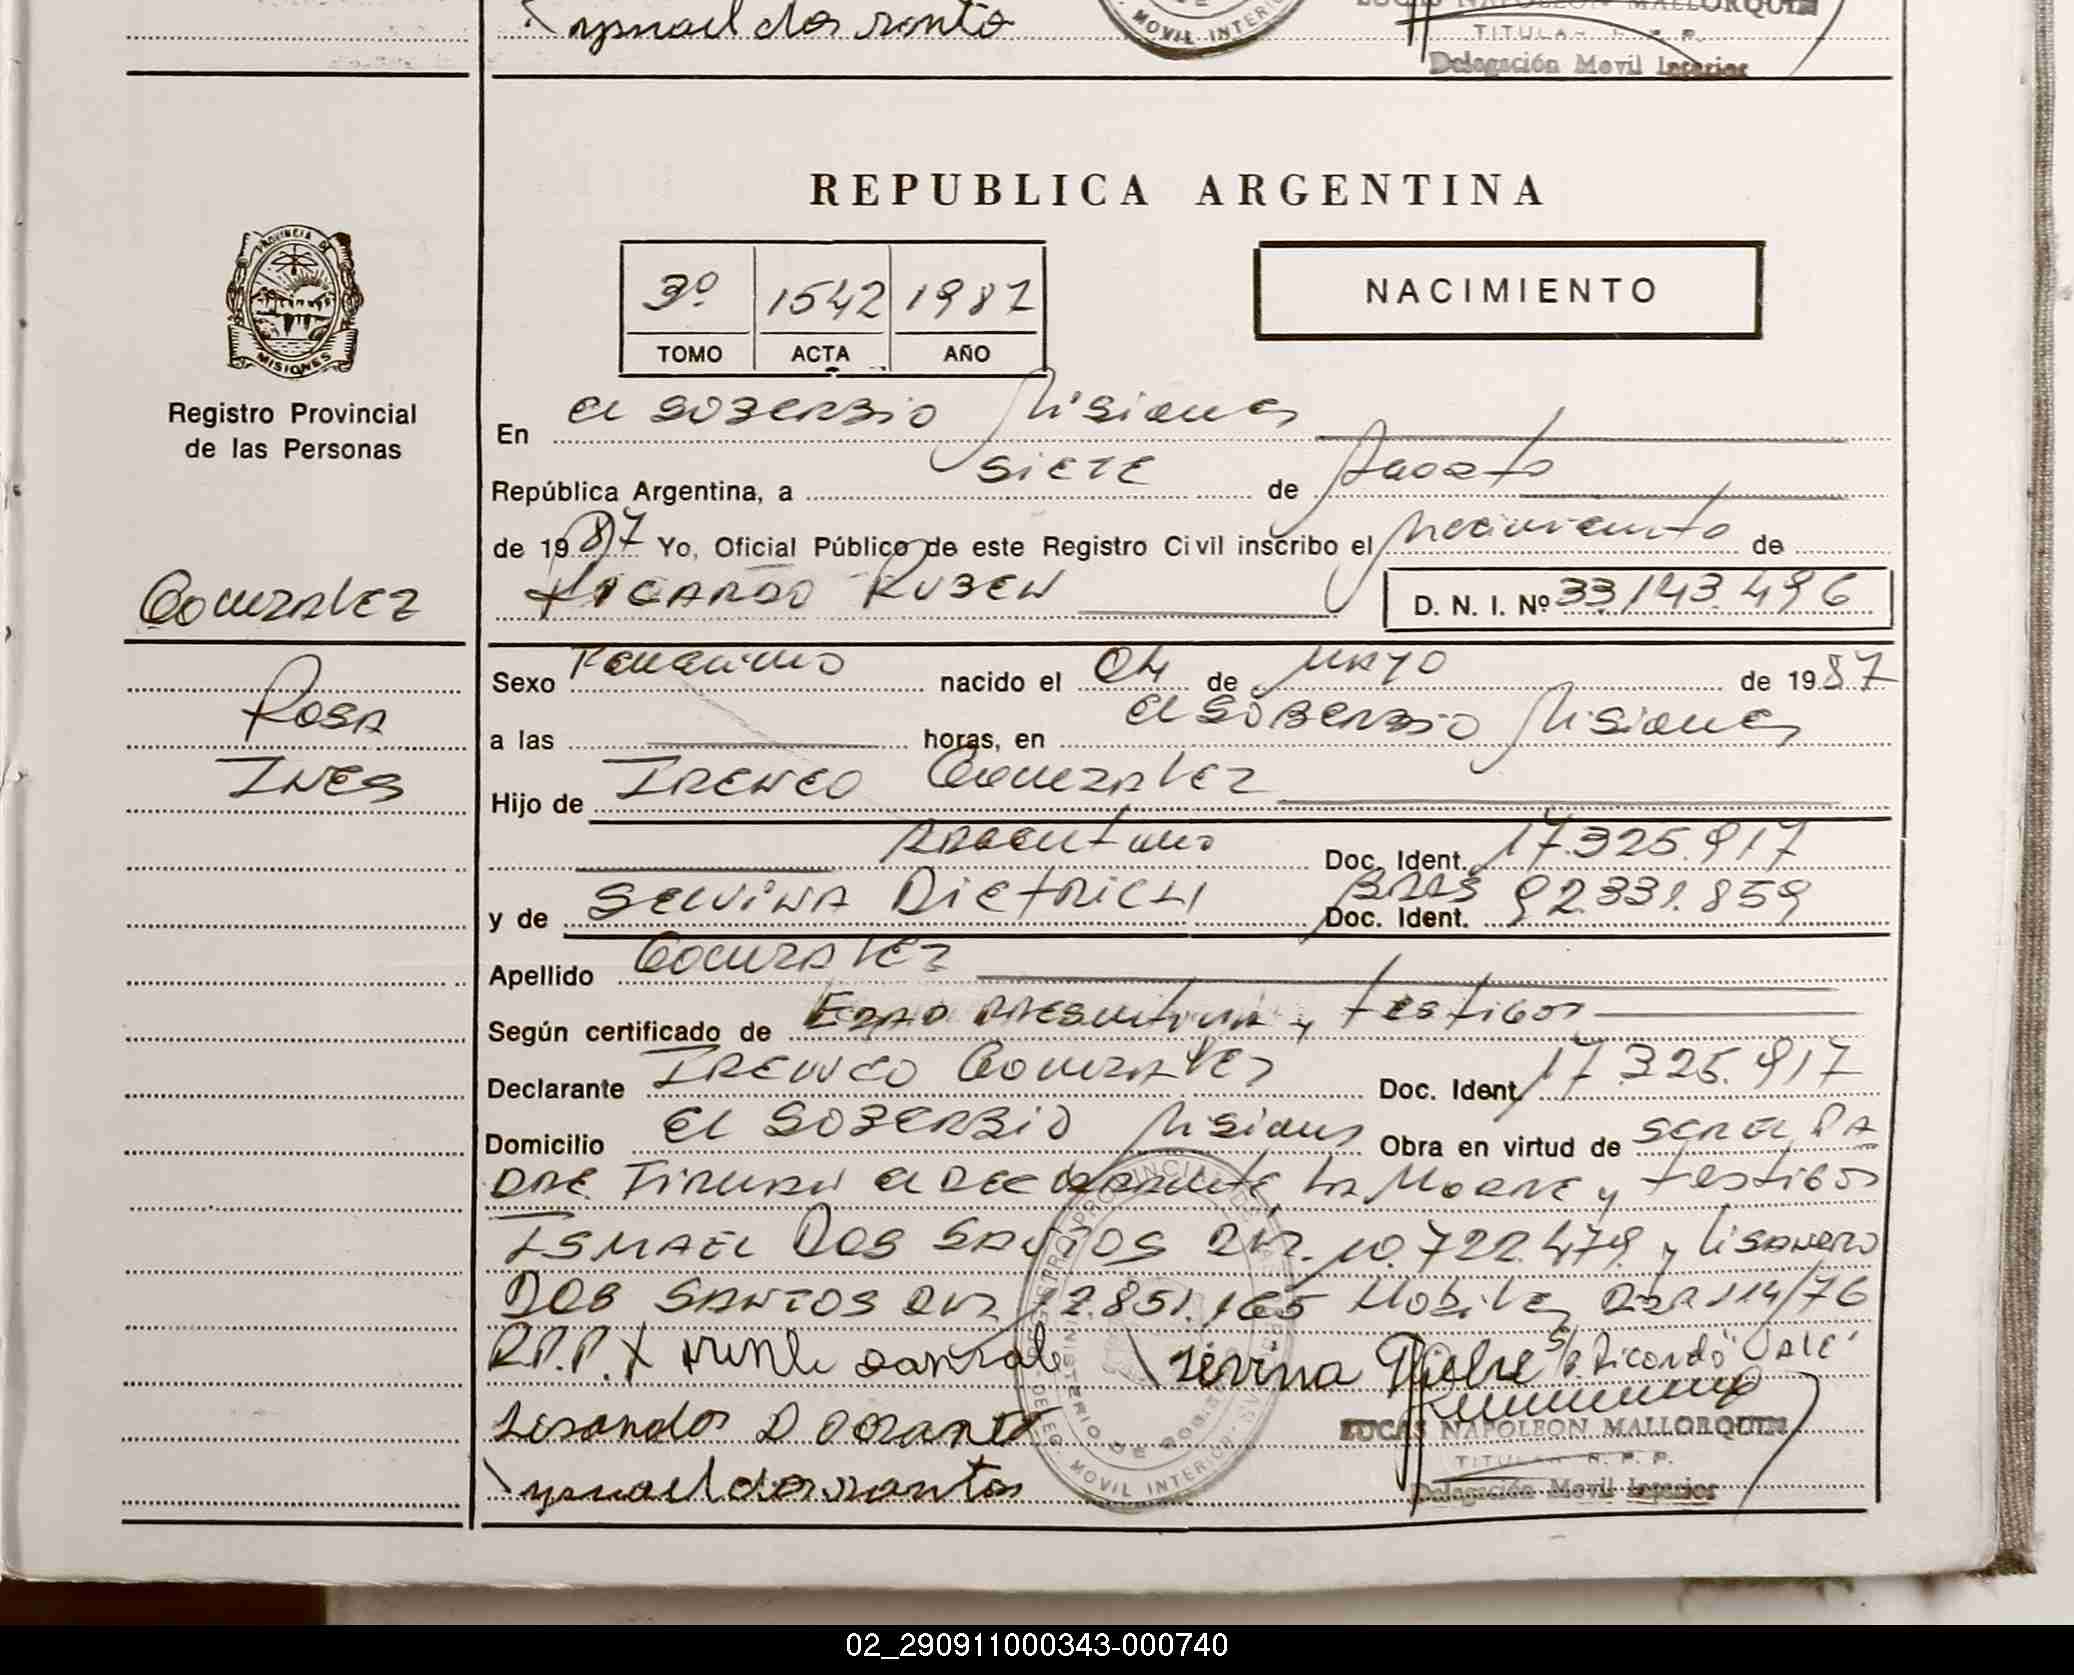 Ysmael dos santo
MOVIL INTERI
LUCAS NAPOLEON MALLORQUIN
TITULAR R. P. P.
Delegación Movil Interior
REPUBLICA ARGENTINA
PROVINCIA DE
MISIONES
Registro Provincial
de las Personas
3º 1542 1987
TOMO ACTA AÑO
NACIMIENTO
En El SOBERBIO Misiones
República Argentina, a SIETE de Agosto
de 1987 Yo, Oficial Público de este Registro Civil inscribo el Nacimiento de
RICARDO RUBEN D. N. I. Nº 33.143.496
Gonzalez
Rosa
INES
Sexo Femenino nacido el 04 de MAYO de 1987
a las horas, en El SOBERBIO Misiones
Hijo de IRENEO Gonzalez
Argentino Doc. Ident. 17.325.917
y de SELVINA DIETRICH BRAS Doc. Ident. 92.331.859
Apellido Gonzalez
Según certificado de EDAD PRESUNTIVA y testigos
Declarante IRENEO Gonzalez Doc. Ident. 17.325.917
Domicilio El SOBERBIO Misiones Obra en virtud de SER EL PA
DRE. FIRMAN El DECLARANTE, LA MADRE y testigos
ISMAEL DOS SANTOS DNI. 10.722.479 y LISANDRO
DOS SANTOS DNI 12.851.165 114/76
R.P.P. X Selvina S/R Ricardo "VALE"
Ysmael dos santos
LUCAS NAPOLEON MALLORQUIN
TITULAR R. P. P.
Delegación Movil Interior
REGISTRO PROVINCIAL DE
MINISTERIO DE GOBIERNO
DELEG. MOVIL INTERIOR
02_290911000343-000740